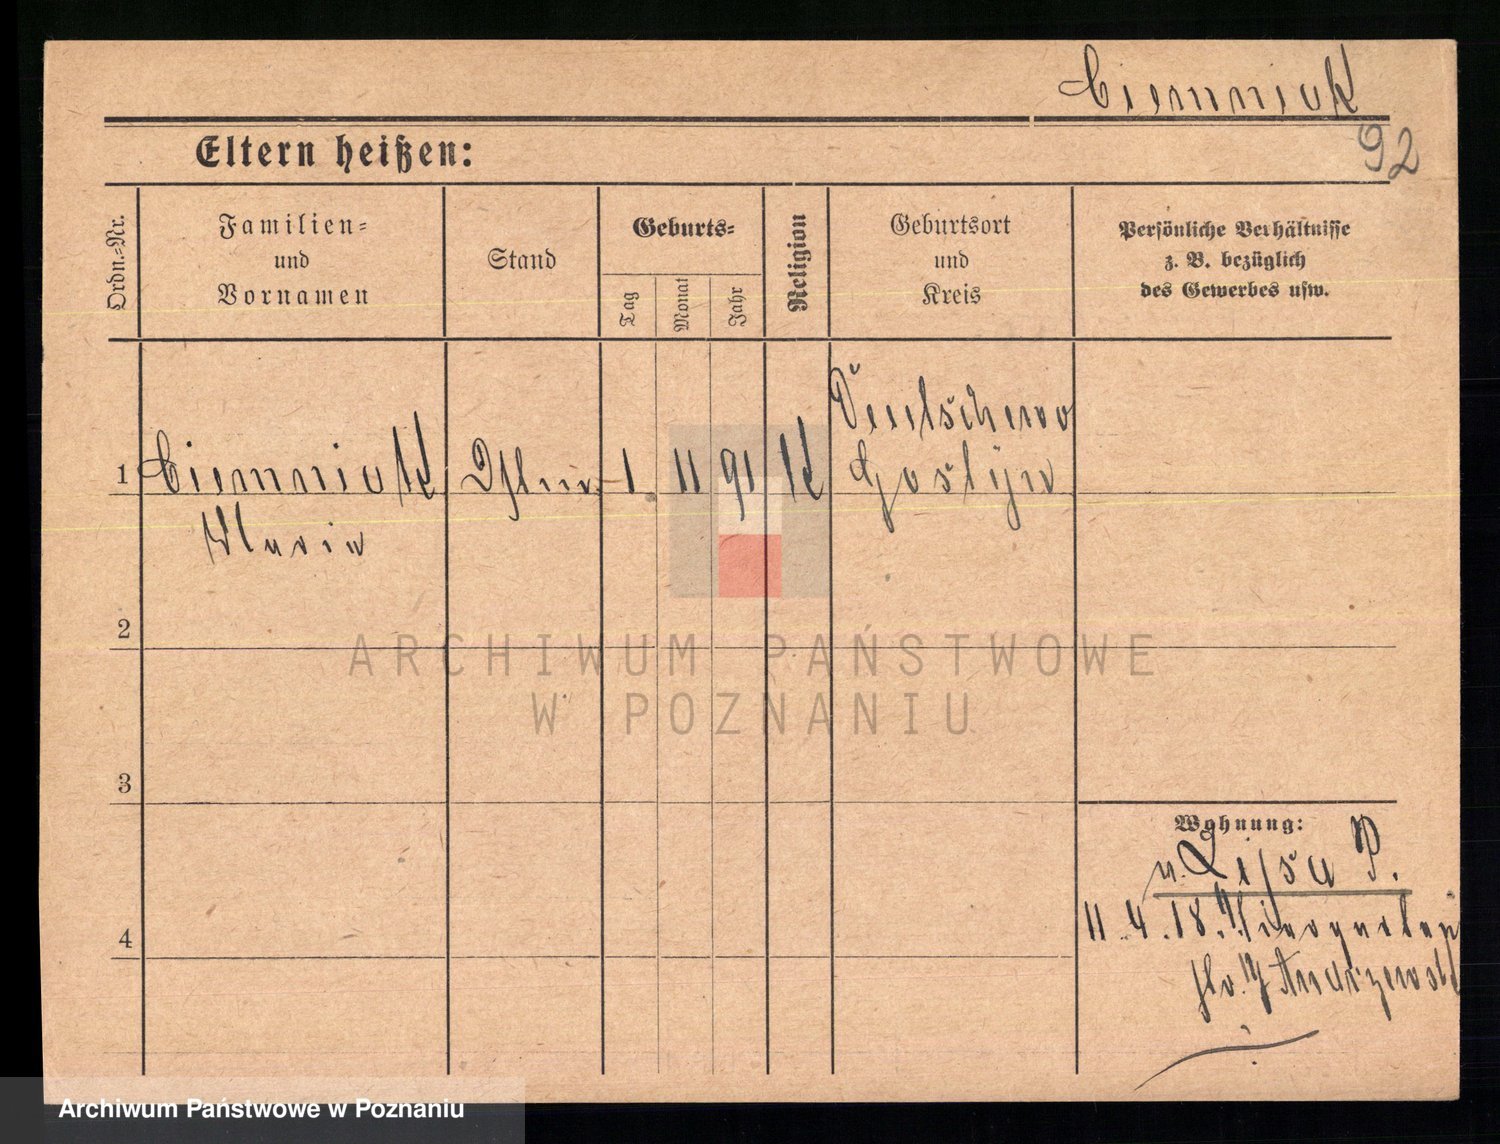 Ciemniak
92
Eltern heißen:
Ordn.-Nr.
Familien-
und
Vornamen
Stand
Geburts-
Tag
Monat
Jahr
Religion
Geburtsort
und
Kreis
Persönliche Verhältnisse
z. B. bezüglich
des Gewerbes usw.
1
Ciemniak
Maria
1.
11
91
K
Deutschenau
Gostyn
2
3
4
Wohnung:
n. Lissa P.
11.4.18.
Andrzewski
ARCHIWUM PAŃSTWOWE
W POZNANIU
Archiwum Państwowe w Poznaniu